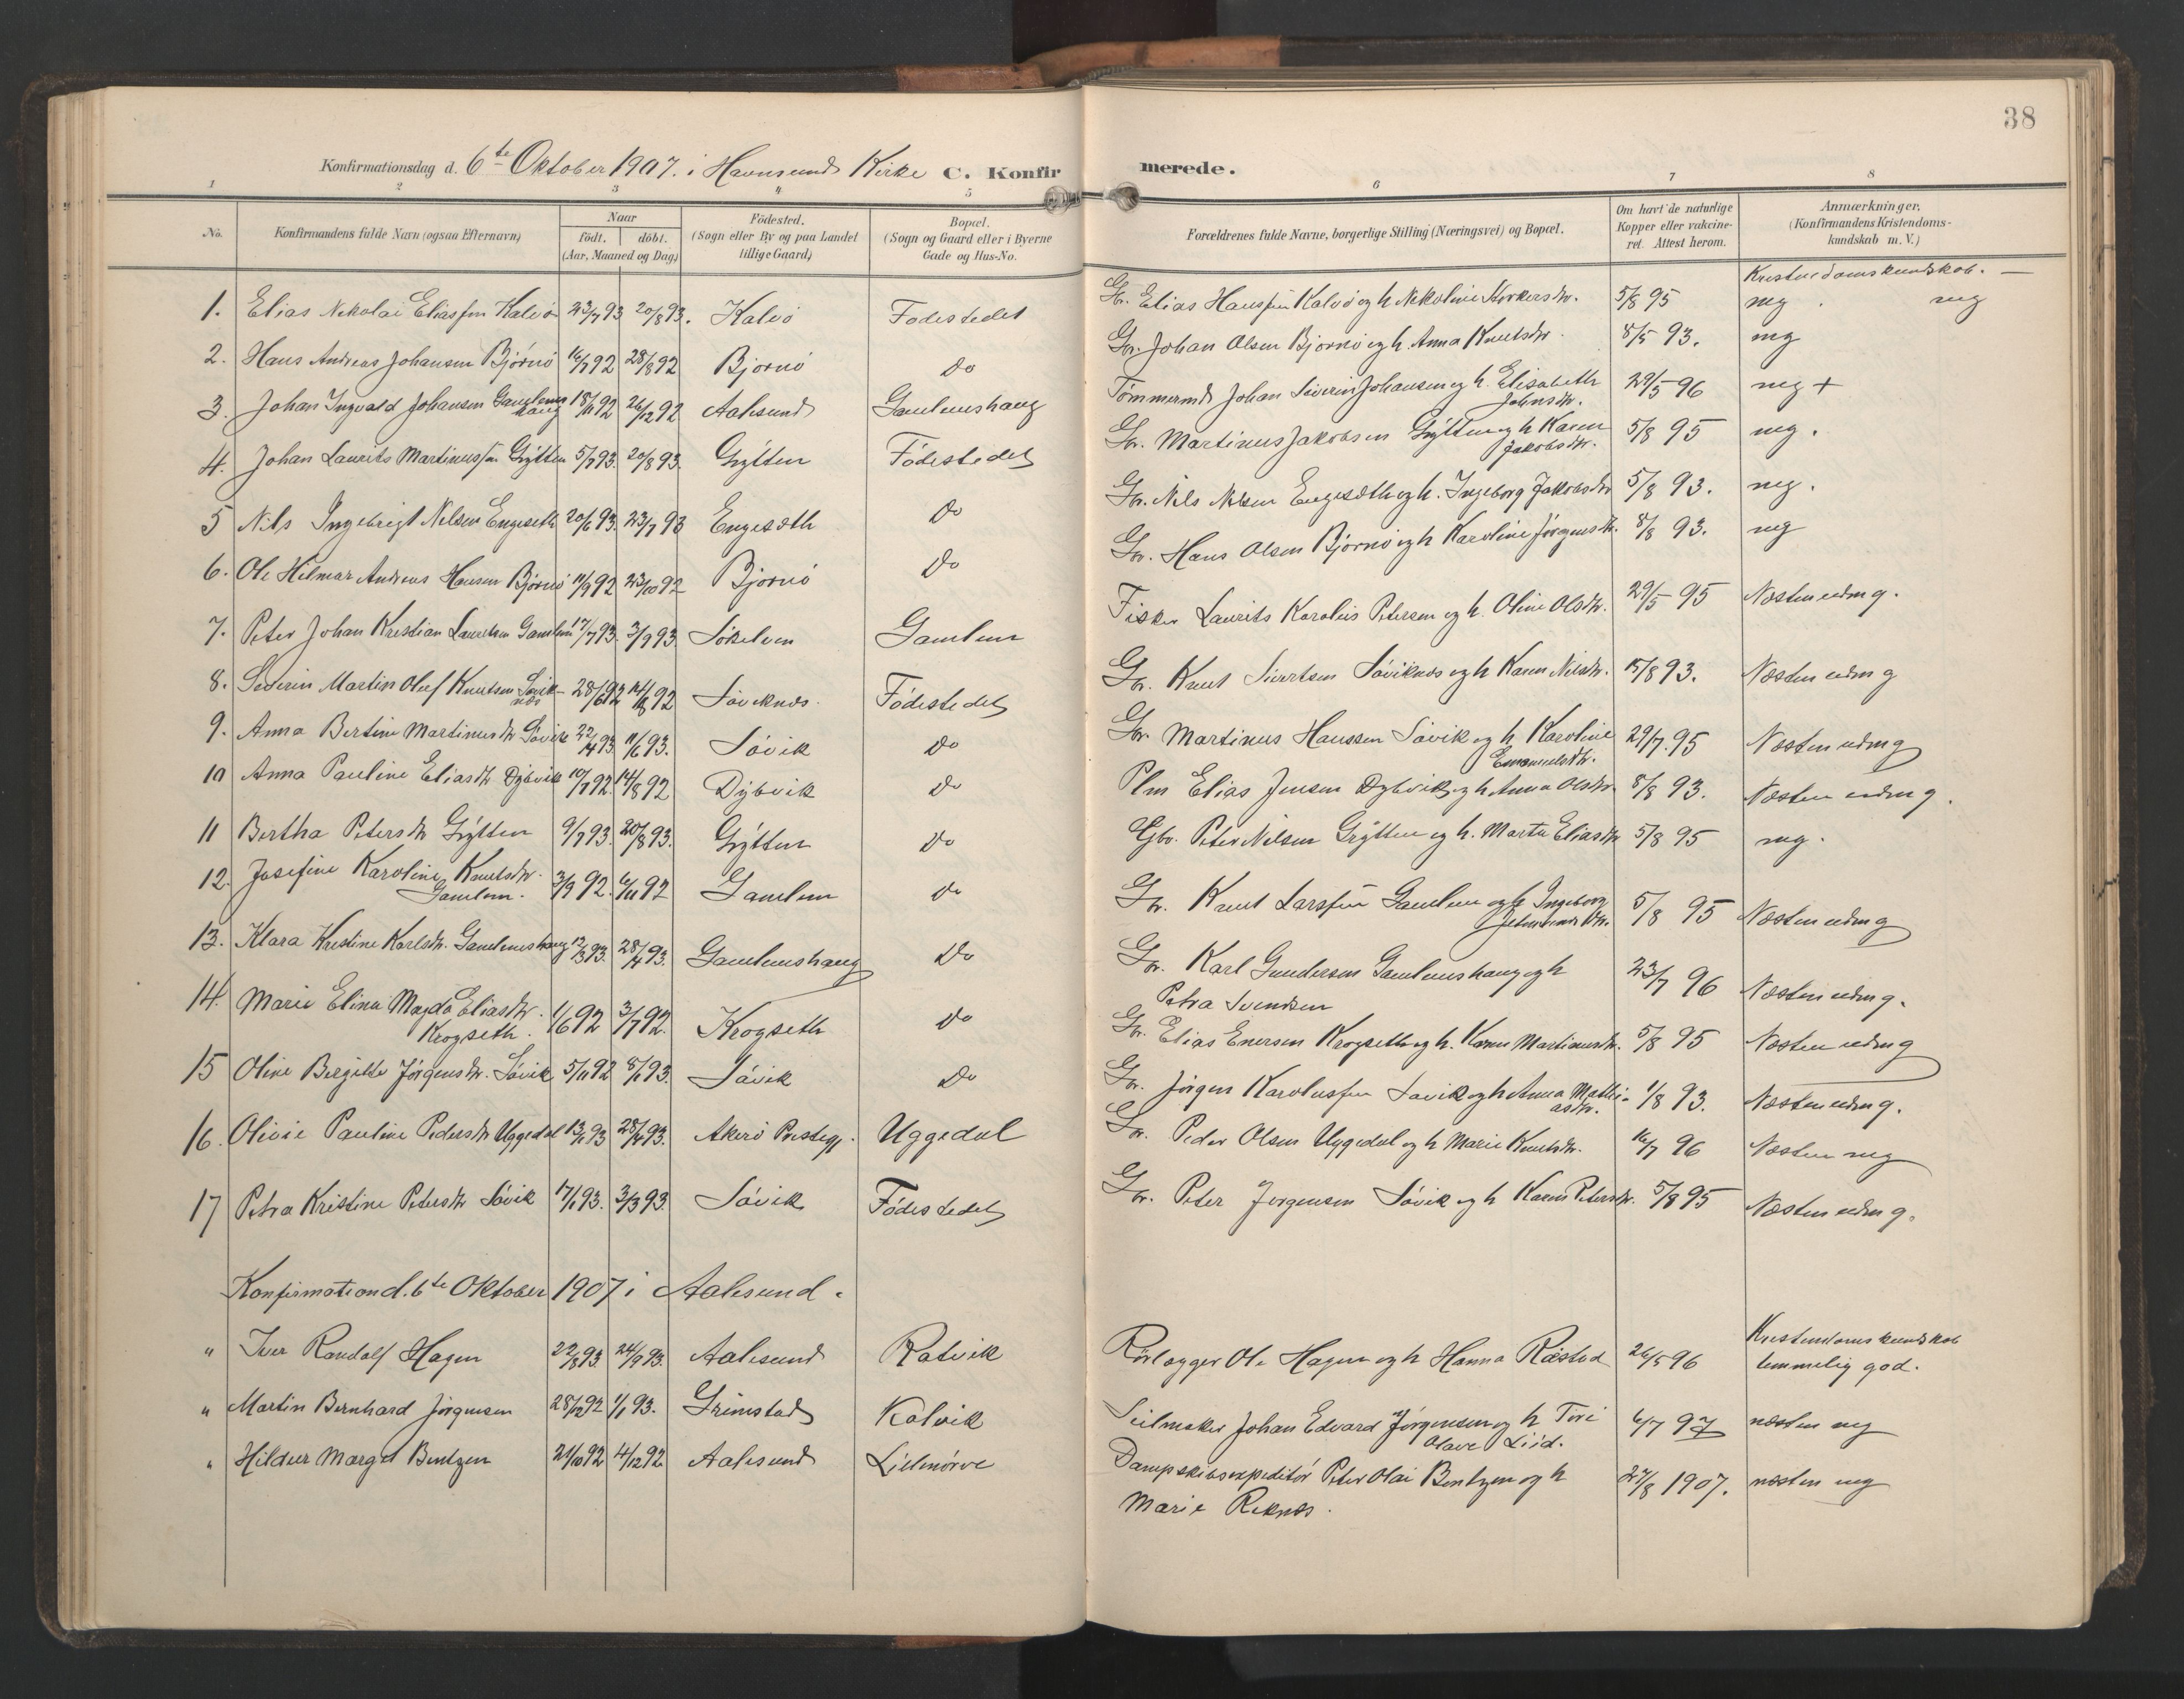 38
Konfirmationsdag d. 6te Oktober 1907. i Havnsund Kirke C. Konfirmerede.
1 2 3 4 5 6 7 8
No.
Konfirmandens fulde Navn (ogsaa Efternavn)
Naar
födt. döbt.
(Aar, Maaned og Dag)
Födested.
(Sogn eller By og paa Landet
tillige Gaard)
Bopæl.
(Sogn og Gaard eller i Byerne
Gade og Hus-No.
Forældrenes fulde Navne, borgerlige Stilling (Næringsvei) og Bopæl.
Om havt de naturlige
Kopper eller vakcine-
ret. Attest herom.
Anmærkninger.
(Konfirmandens Kristendoms-
kundskab m. V.)
Kristendomskundskab. —
1. Elias Nikolai Eliasfen Kalvö 23/7 93 20/8 93. Kalvö Fodestedet Gr. Elias Hansfen Kalvö og h Nikoline Korkersdr. 5/8 95 mg . mg
2. Hans Andreas Johansen Björnö 16/7 92 28/8 92 Bjornö Do Gr. Johan Olsen Bjornö og h. Anna Knutsdr. 8/5 93. mg
3. Johan Ingvald Johansen Gamlems
haug 18/11 92 26/12 92 Aalesund Gamlemshaug Tömmermd Johan Severin Johansen og h. Elisabeth
Johnsdr. 29/5 96 mg +
4. Johan Laurits Martinusfen Grÿtten 5/7 93. 20/8 93. Grÿtten Födestedet Gr. Martinus Jakobsen Grÿtten og h Karen
Jakobsdr. 5/8 95 mg.
5 Nils Ingebrigt Nilsen Engeseth 20/6 93. 23/7 93 Engesæth Do Gr. Nils Nilsen Engesæth og h. Ingeborg Jakobsdr 5/8 93. mg.
6. Ole Hilmar Andreas Hansen Björnö 11/9 92 23/10 92 Bjornö Do Gr. Hans Olsen Bjornö og h Karoline Jörgensdr. 8/8 93. mg
7. Peter Johan Kristian Lauritsen Gamlem 17/7 93. 3/9 93. Sökelven Gamlem Fisker Laurits Karolius Petersen og h. Oline Olsdr. 29/5 95 Næsten udm g.
8. Severin Martin Oluf Knutsen Sövik-
næs 28/6 92 14/8 92 Söviknæs. Födestedet Gr. Knut Sivertsen Söviknæs og h Karen Nilsdr. 15/8 93. Næsten udm g
9. Anna Bertine Martinusdr Sövik 22/4 93 11/6 93. Sövik Do Gr. Martinus Hanssen Sövik og h Karoline
Emanuelsdtr. 29/7. 95 Næsten udm g
10 Anna Pauline Eliasdr. Dÿbvik 10/7 92 14/8 92 Dÿbvik Do Plm Elias Jensen Dybvik og h Anna Olsdr. 8/8 93. Næsten udm g.
11 Bertha Petersdr Grÿtten 9/7 93. 20/8 93. Grÿtten Do Gbr. Peter Nilsen Grÿtten og h. Marte Eliasdr 5/8 95 mg.
12. Josefine Karoline Knutsdr.
Gamlem. 3/9 92. 6/11 92 Gamlem Do Gr. Knut Larsfen Gamlem og h Ingeborg
5/8 95 Næsten udm g
13. Klara Kristine Karlsdr. Gamlemshaug 12/3 93. 28/4 93. Gamlemshaug Do Gr. Karl Gundersen Gamlemshaug og h
Petra Svendsen 23/7 96 Næsten udm g.
14. Marie Elina Magda Eliasdr.
Krogseth. 1/6 92 3/7 92. Krogseth Do Gr. Elias Enersen Krogseth og h. Karen Martinusdr. 5/8 95 Næsten udm g
15 Oline Bergitte Jörgensdr. Sövik 5/11 92 8/1 93. Sövik Do Gr. Jörgen Karolusfen Sövik og h Anna Mathi-
asdr. 1/8 93. Næsten udm g.
16. Olivie Pauline Pedersdr Uggedal 13/1 93 28/4 93. Akerö Prestegj. Uggedal Gr. Peder Olsen Uggedal og h Marie Knutsdr. 16/7 96 Næsten mg
17 Petra Kristine Petersdr Sövik 17/1 93. 3/3 93. Sövik Födestedet Gr. Peter Jörgensen Sövik og h Karen Petersdr. 5/8 95 Næsten udm g.
Konfirmation d. 6te Oktober 1907 i Aalesund.
Kristendomskundskab
" Iver Randolf Hagen 22/8 93 24/9 93. Aalesund Ratvik Rörlægger Ole Hagen og h Hanna Ræstad 26/5 96 temmelig god.
" Martin Bernhard Jörgensen 28/10 92 1/1 93. Grimstad Kolvik Seilmaker Johan Edvard Jörgensen og h Tori
Olave Liid. 6/7 97 næsten mg
" Hildur Margit Bentzen 21/10 92 4/12 92 Aalesund Lillenörve Dampskibsexpeditör Peter Olai Bentzen og h
Marie Reknæs. 27/8 1907. næsten mg